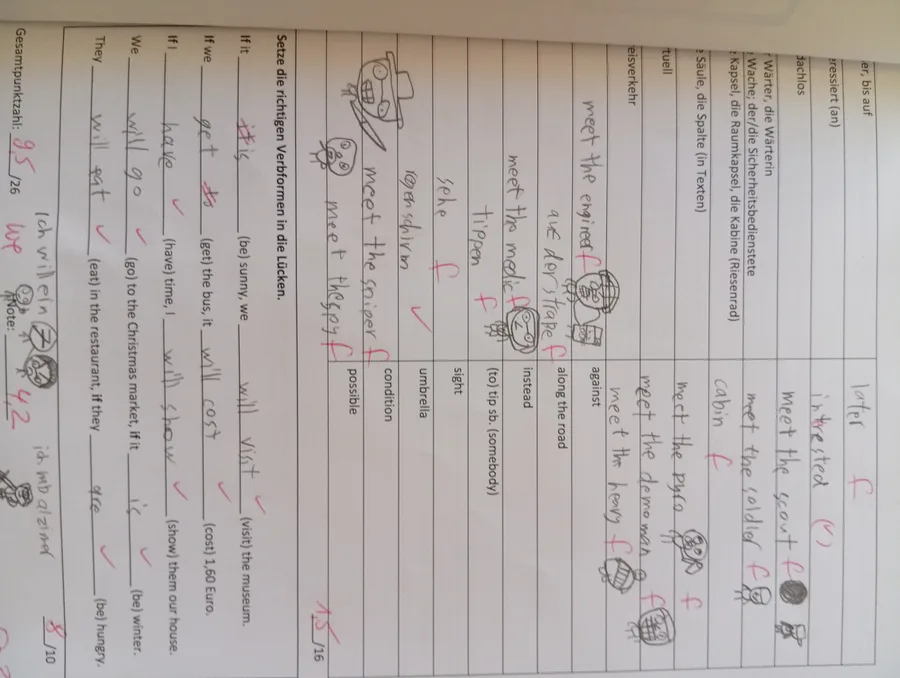 er, bis auf later f
eressiert (an) intrested (✓)
dachlos meet the scout f
Wärter, die Wärterin
Wache; der/die Sicherheitsbedienstete meet the soldier f
Kapsel, die Raumkapsel, die Kabine (Riesenrad) cabin f
Säule, die Spalte (in Texten) meet the pyro f
tuell meet the demoman f
eisverkehr meet th heavy f
meet the engineer f against
aus der straße f along the road
meet the medic f instead
tippen f (to) tip sb. (somebody)
sehe f sight
regenschirm ✓ umbrella
meet the sniper f condition
meet the spy f possible
1,5/16
Setze die richtigen Verbformen in die Lücken.
If it is (be) sunny, we will visit ✓ (visit) the museum.
If we get (get) the bus, it will cost ✓ (cost) 1,60 Euro.
If I have ✓ (have) time, I will show ✓ (show) them our house.
We will go ✓ (go) to the Christmas market, if it is ✓ (be) winter.
They will eat ✓ (eat) in the restaurant, if they are ✓ (be) hungry.
8/10
Ich will ein
Gesamtpunktzahl: 9,5 /26 Note: 4,2